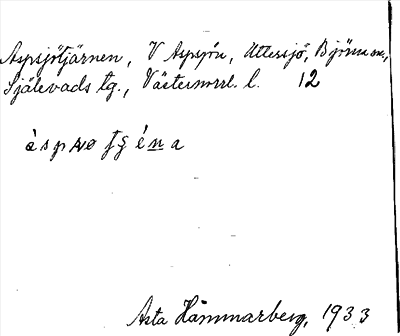 Aspsjötjärnen, V Aspsjön, Utterssjö, Björna sn,
Själevads tg., Västernorrl. l. 12
Asta Hammarberg, 1933